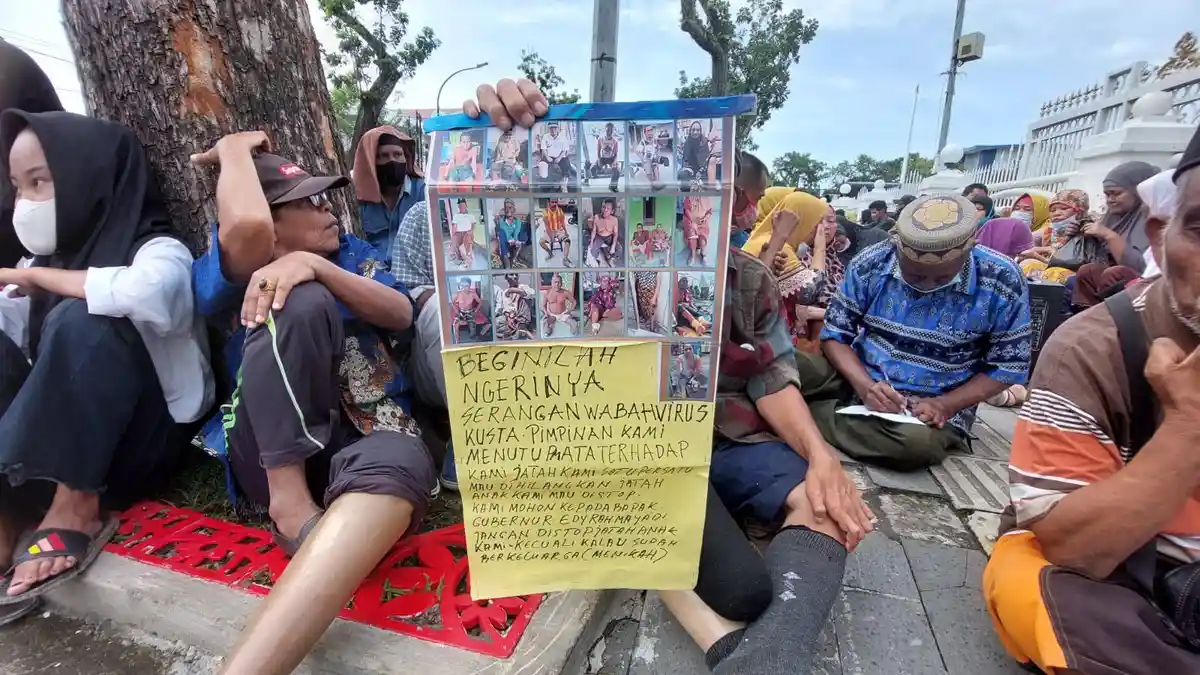 BEGINILAH
NGERINYA
SERANGAN WABAH VIRUS
KUSTA. PIMPINAN KAMI
MENUTU MATA TERHADAP
KAMI JATAH KAMI SATU PERSATU
MAU DIHILANGKAN JATAH
ANAK KAMI MAU DISTOP.
KAMI MOHON KEPADA BAPAK
GUBERNUR EDY RAHMAYADI
JANGAN DISTOP JATAH ANAK
KAMI. KECUALI KALAU SUDAH
BERKELUARGA (MENIKAH)